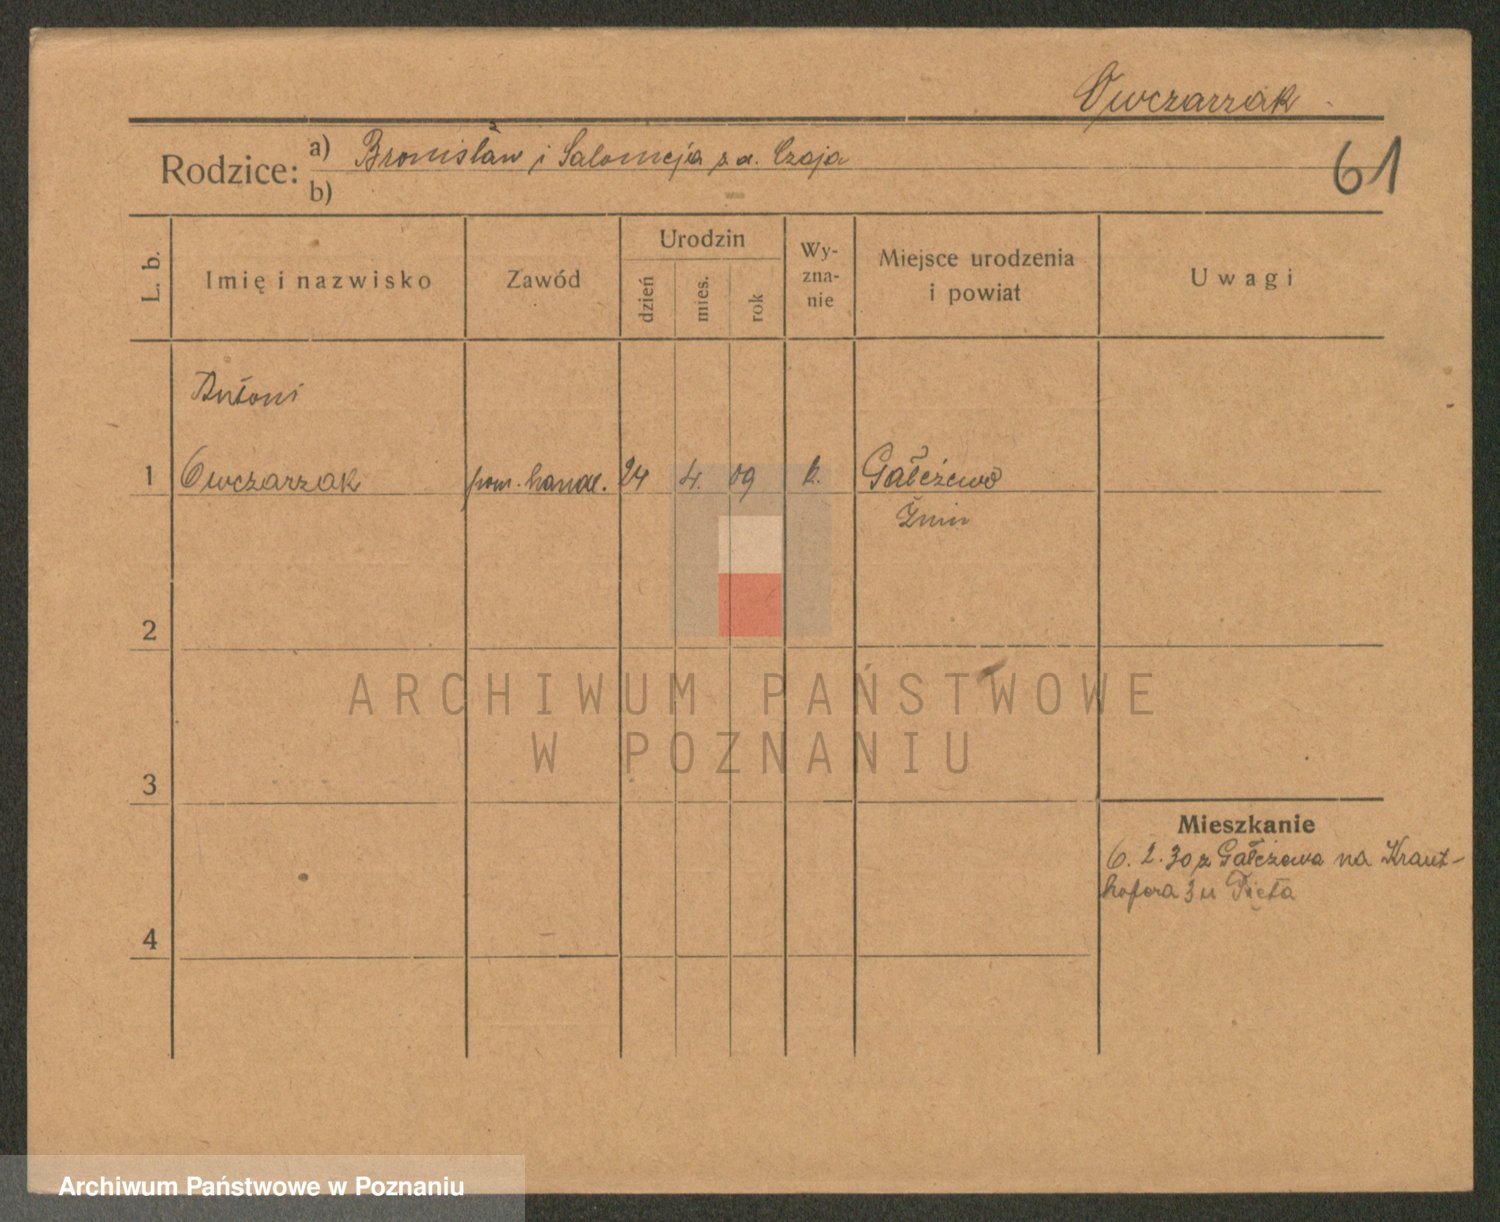 Owczarzak
61
Rodzice: a) Bronisław i Salomeja z d. Czaja
b)
L. b.
Imię i nazwisko
Zawód
Urodzin
dzień
mies.
rok
Wy-
zna-
nie
Miejsce urodzenia
i powiat
Uwagi
Antoni
1 Owczarzak pom. handl. 24 4. 09 k. Gałężewo
Żnin
2
3
4
Mieszkanie
6. 2. 30 z Gałężewa na Kraut-
hofera 3 u Pięta
ARCHIWUM PAŃSTWOWE
W POZNANIU
Archiwum Państwowe w Poznaniu